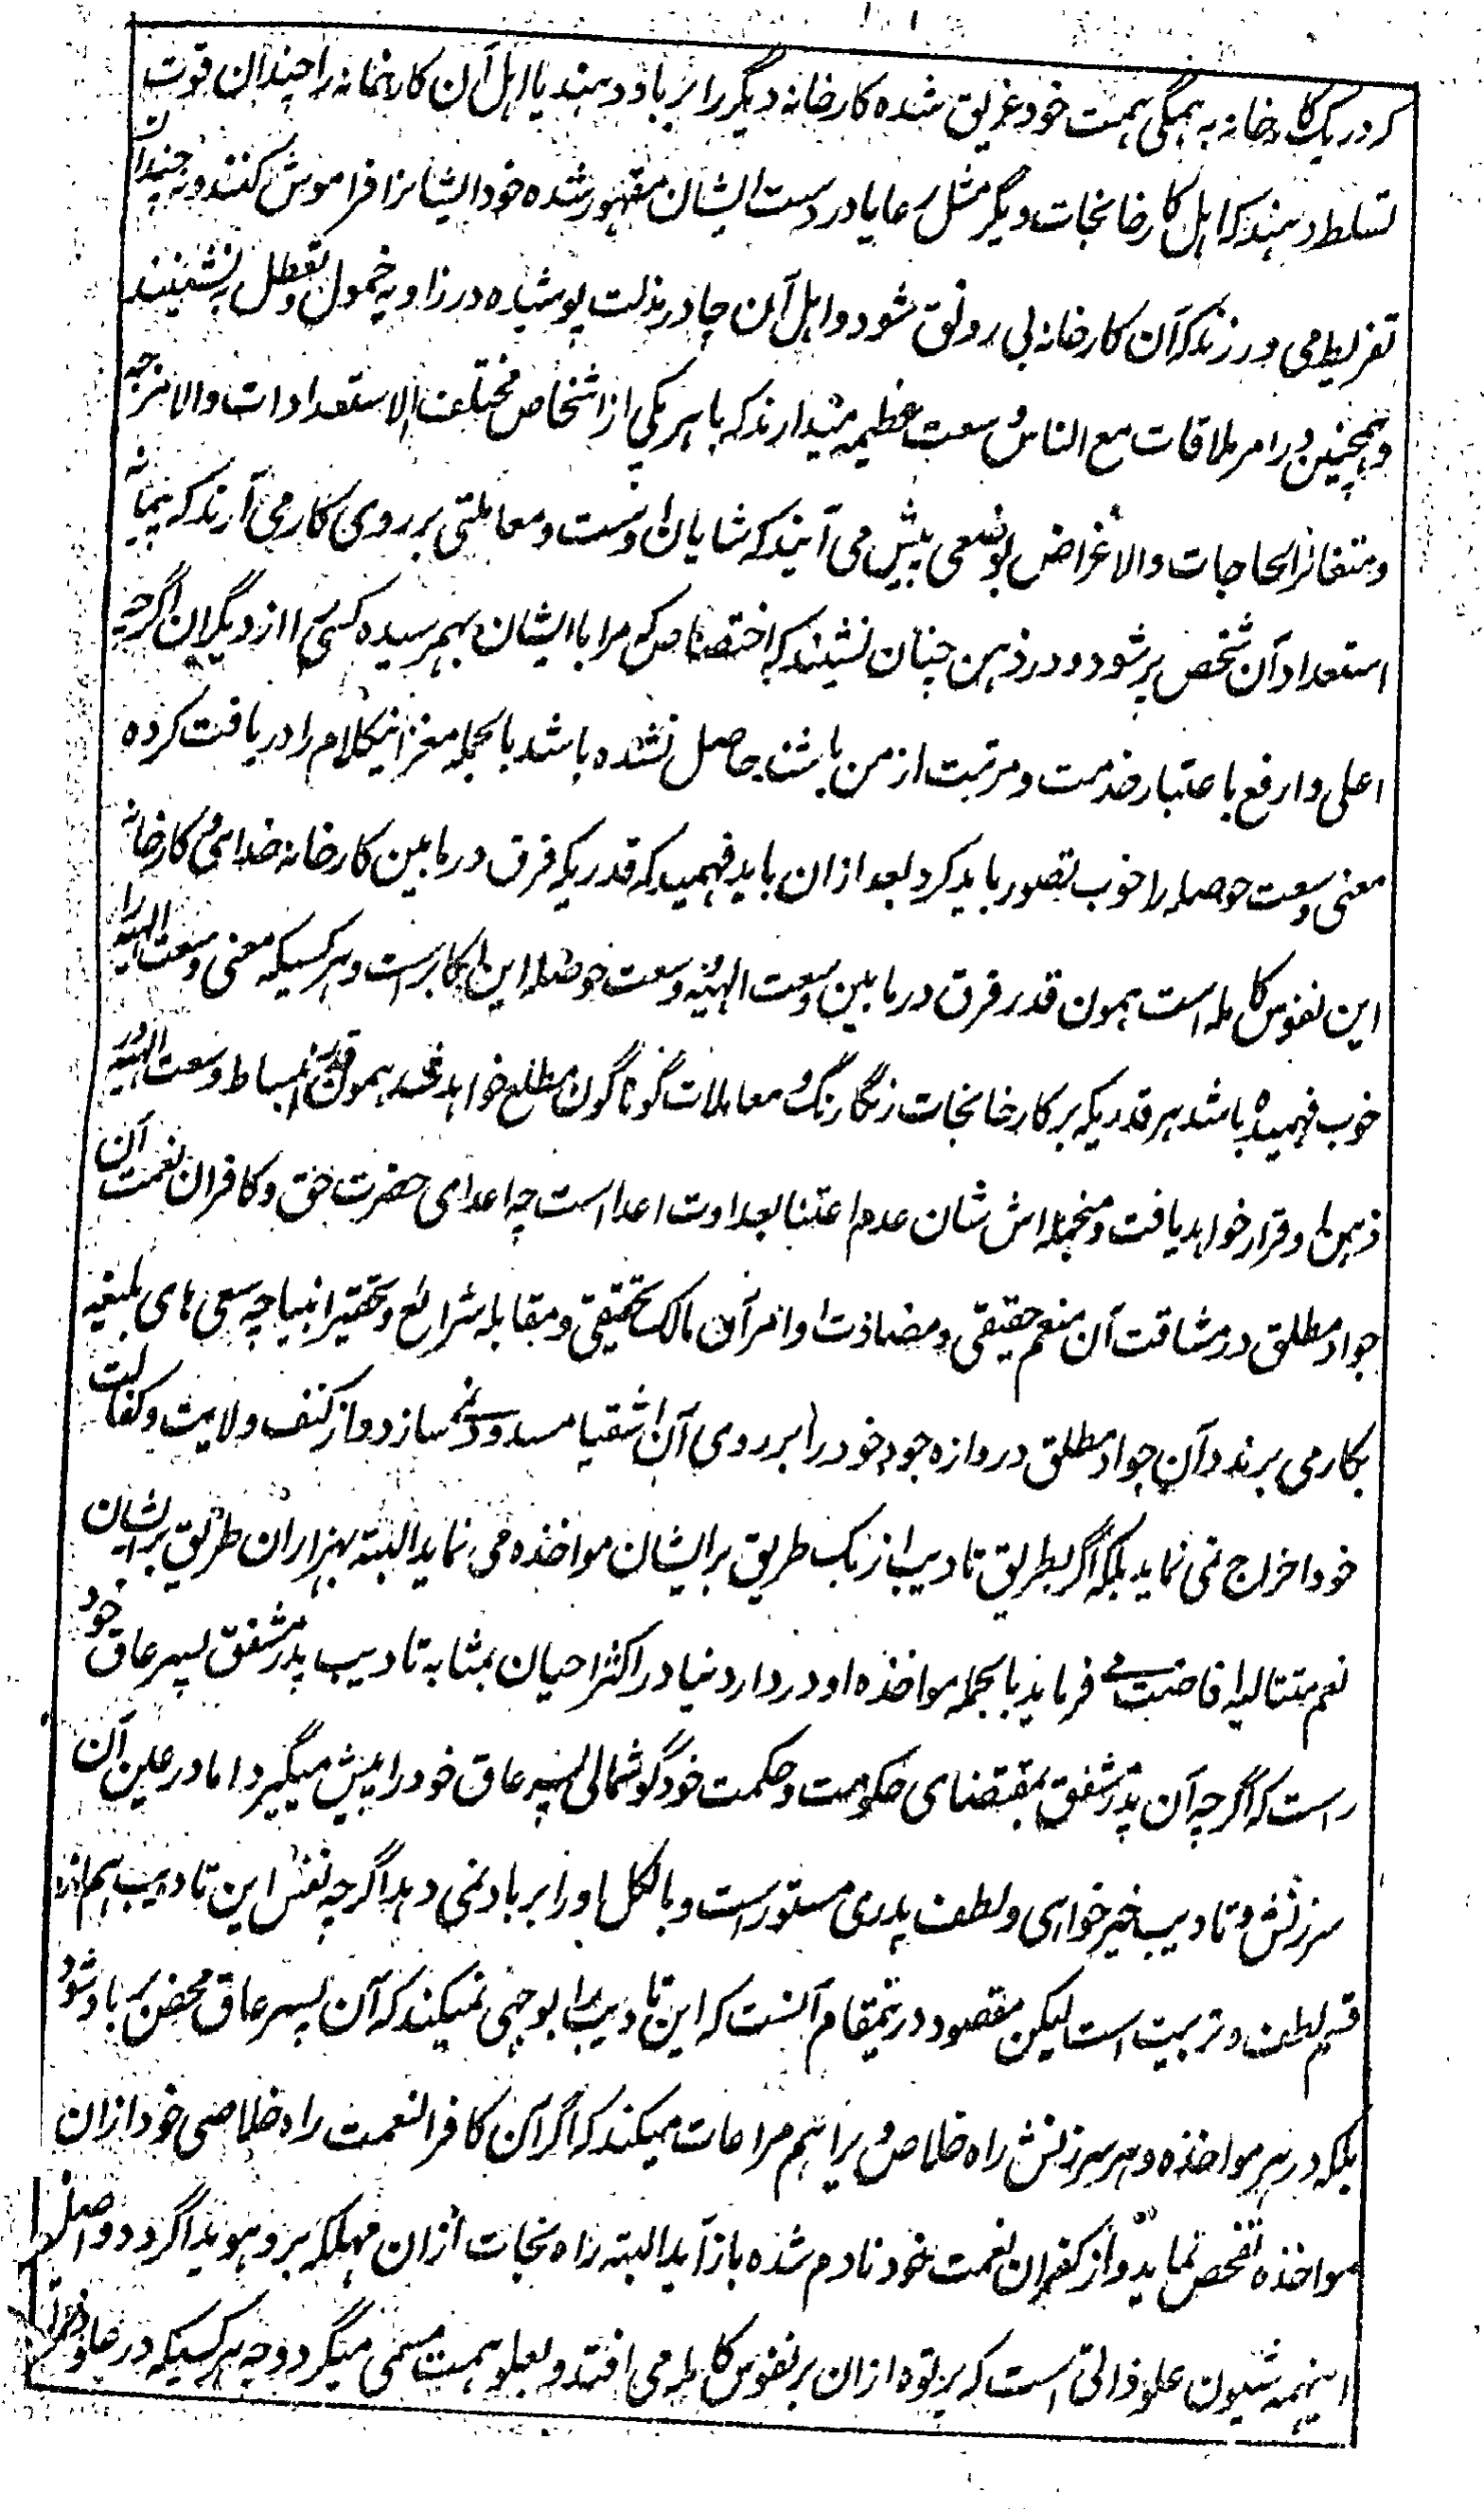 که در یک کارخانه به همگی همت خود غریق شده کارخانه دیگر را برباد دهند یا اهل آن کارخانه را چندان قوت
تسلط دهند که اهل کارخانجات دیگر مثل رعایا در دست ایشان مقهور شده خود ایشانرا فراموش کنند و نه چندان
تفریط می ورزند که آن کارخانه بی رونق شود و اهل آن چادر مذلت پوشیده در زاویه خمول و تعطل بنشینند
و همچنین در امر ملاقات مع الناس وسعت عظیمه میدارند که با هر یکی از اشخاص مختلف الاستعدادات والامزجه
و متغائر الحاجات والاغراض بوضعی پیش می آیند که شایان اوست و معاملتی بر روی کار می آرند که پیمانه
استعداد آن شخص پر شود و در ذهن چنان نشیند که اختصاص که مرا با ایشان بهم رسیده کسی را از دیگران اگرچه
اعلی و ارفع باعتبار خدمت و مرتبت از من باشد حاصل نشده باشد بالجمله مغز اینکلام را دریافت کرده
معنی وسعت حوصله را خوب تصور باید کرد بعد ازان باید فهمید که قدریکه فرق در مابین کارخانه خدائی و کارخانه
این نفوس کامله است همون قدر فرق در مابین وسعت الهیه وسعت حوصله این اکابر است و هر کسیکه معنی وسعت الهیه را
خوب فهمیده باشد هر قدریکه بر کارخانجات رنگارنگ و معاملات گوناگون مطلع خواهد شد همون قدر انبساط وسعت الهیه در
ذهن او قرار خواهد یافت و منجمله اش شان عدم اعتنا بعداوت اعدا است چه اعدای حضرت حق و کافران نعمت آن
جواد مطلق در مشاقت آن منعم حقیقی و مضادت اوامر آن مالک تحقیقی و مقابله شرائع و تحقیر انبیا چه سعی های بلیغه
بکار می برند و آن جواد مطلق دروازه جود خود را بر روی آن اشقیا مسدود نمی سازد و از کنف ولایت و کفالت
خود اخراج نمی نماید بلکه اگر بطریق تادیب از یک طریق بر ایشان مواخذه می نماید البته بهزاران طریق بر ایشان
نعم متتالیه افاضت می فرماید بالجمله مواخذه او در دار دنیا در اکثر احیان بمثابه تادیب پدر مشفق پسر عاق خود
راست که اگرچه آن پدر مشفق بمقتضای حکومت و حکمت خود گوشمالی پسر عاق خود را پیش میگیرد اما در عین آن
سرزنش و تادیب خیرخواهی و لطف پدری مستور است و بالکل او را برباد نمی دهد اگرچه نفس این تادیب هم از
قسم لطف و تربیت است لیکن مقصود درینمقام آنست که این تادیب را بوجهی نمیکند که آن پسر عاق محض برباد شود
بلکه در هر مواخذه و هر سرزنش راه خلاص و را هم مراعات میکند که اگر آن کافر النعمت راه خلاصی خود ازان
مواخذه تفحص نماید و از کفران نعمت خود نادم شده باز آید البته راه نجات ازان مهلکه برو هویدا گردد و اصل
اینهمه شیون علو ذاتی است که پرتوه ازان بر نفوس کامله می افتد و بعلو همت مسمی میگردد چه هر کسیکه در علو